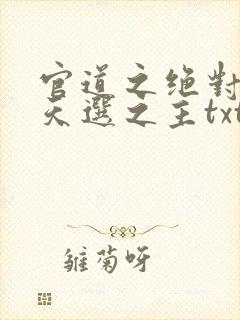 官道之绝對
天選之主txt
雏菊呀